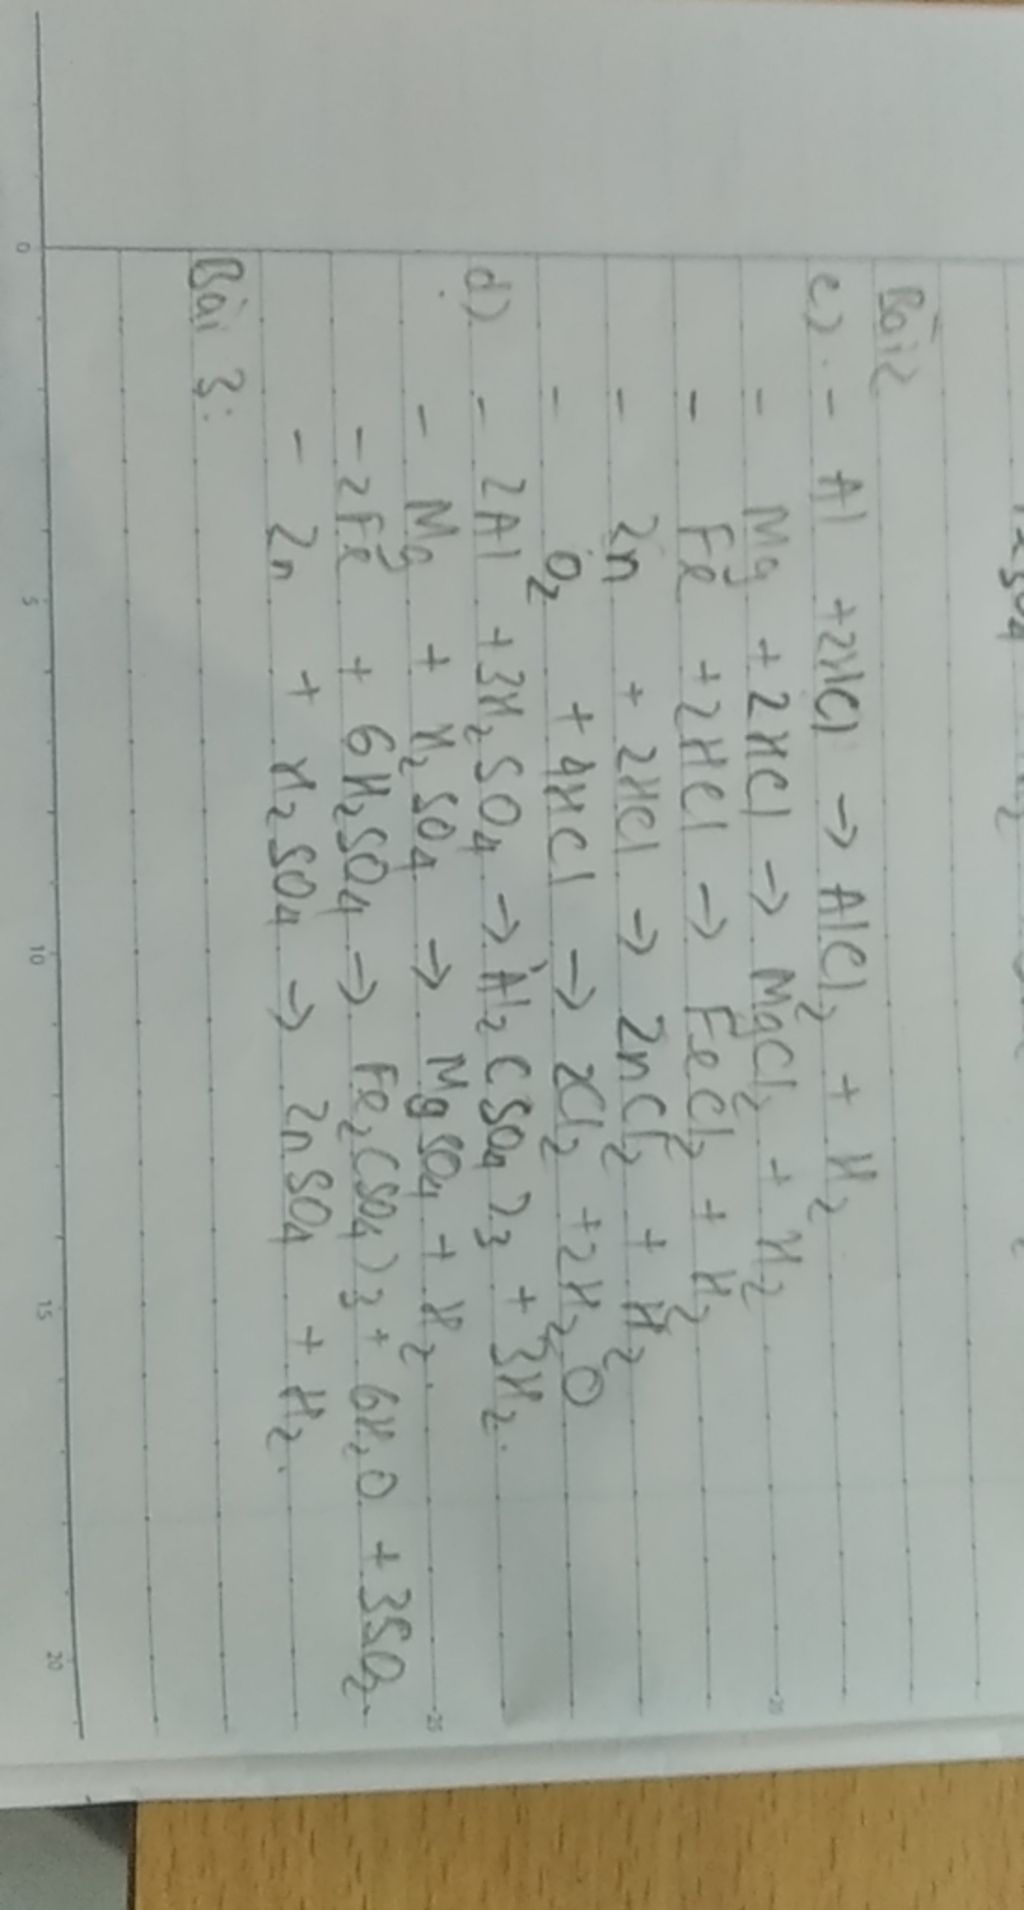 Bài 2
c) - Al + 2HCl → AlCl2 + H2
- Mg + 2HCl → MgCl2 + H2
- Fe + 2HCl → FeCl2 + H2
- Zn + 2HCl → ZnCl2 + H2
- O2 + 4HCl → 2Cl2 + 2H2O
d) - 2Al + 3H2SO4 → Al2(SO4)3 + 3H2.
- Mg + H2SO4 → MgSO4 + H2.
- 2Fe + 6H2SO4 → Fe2(SO4)3 + 6H2O + 3SO2.
- Zn + H2SO4 → ZnSO4 + H2.
Bài 3:
0 5 10 15 20